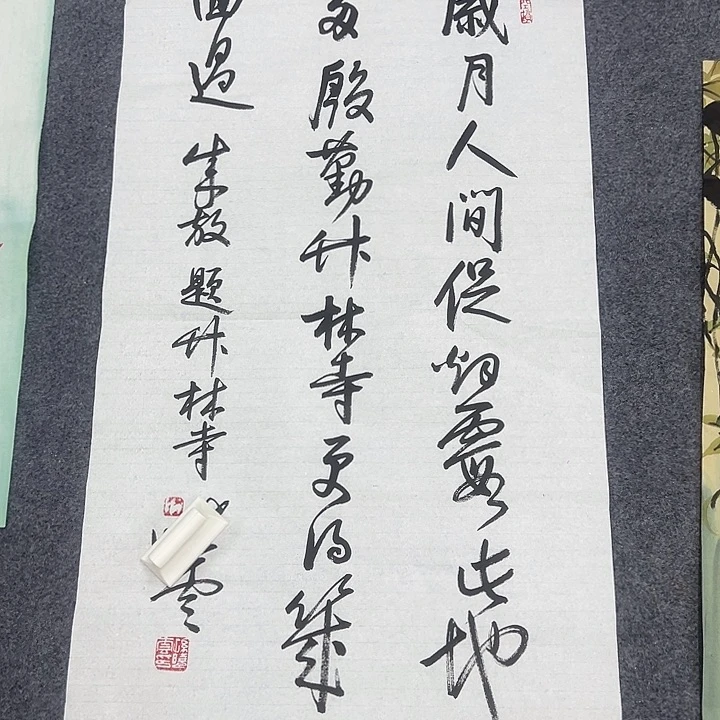 歲月人間促烟霞此地
多殷勤竹林寺更得幾
回過 朱放 題竹林寺
雲